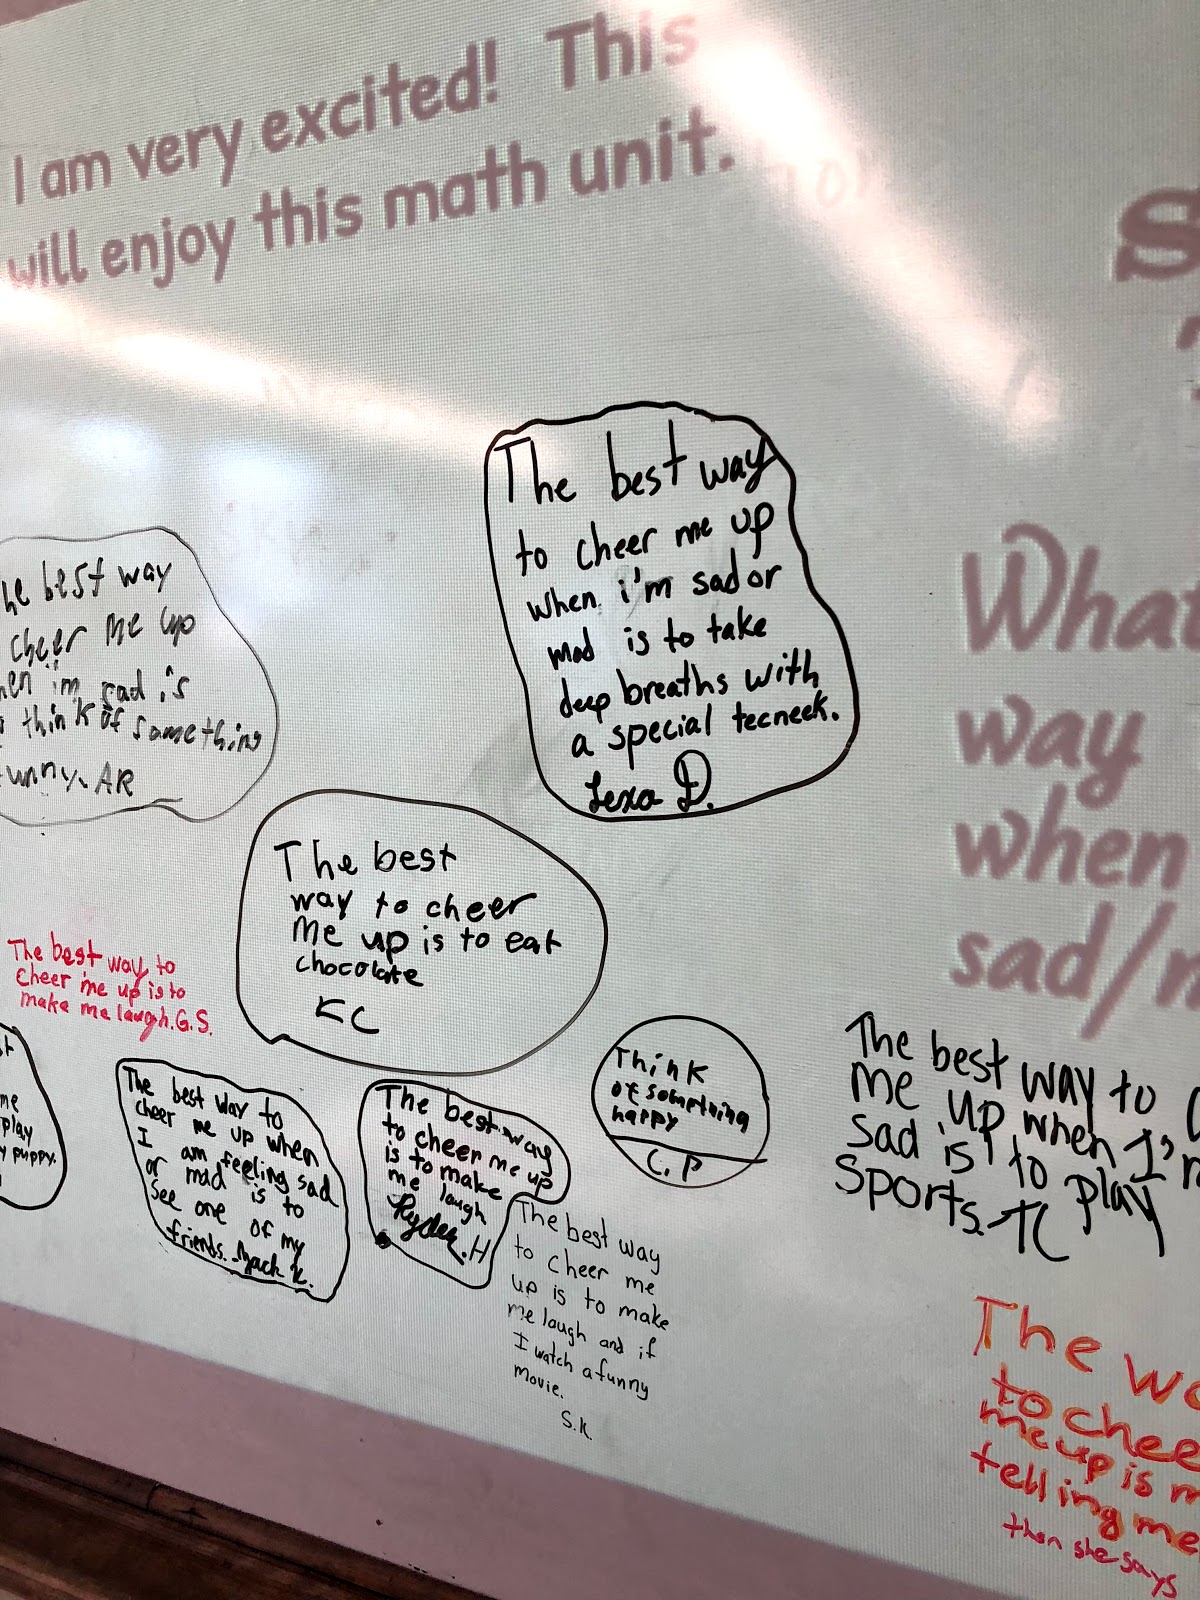 I am very excited! This
will enjoy this math unit.
What
way
when
sad/m
The best way
to cheer me up
when i'm sad or
mad is to take
deep breaths with
a special tecneek.
Lexa D.
he best way
cheer me up
hen i'm sad is
think of something
funny. AR
The best
way to cheer
me up is to eat
chocolate
KC
The best way to
cheer me up is to
make me laugh. G.S.
me
play
y puppy.
The best way to
cheer me up when
I am feeling sad
or mad is to
see one of my
friends. Mack K.
The best way
to cheer me up
is to make
me laugh
Ryder. H
Think
of something
happy
C. P
The best way
to cheer me
up is to make
me laugh and if
I watch a funny
movie.
S.K.
The best way to
me up when I'm
sad is to play
sports. TC
The wa
to chee
me up is m
telling me
then she says